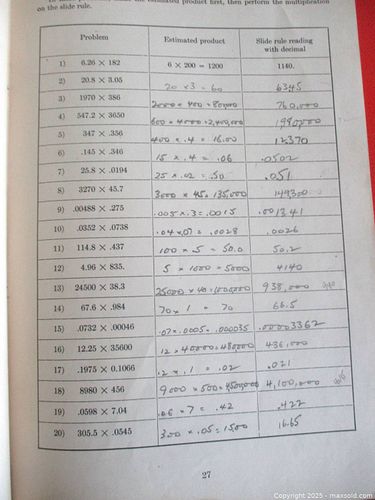 on the slide rule.
Problem Estimated product Slide rule reading with decimal
1) 6.26 × 182 6 × 200 = 1200 1140.
2) 20.8 × 3.05 20 × 3 = 60 6345
3) 1970 × 386 2000 × 400 = 80,000 760,000
4) 547.2 × 3650 600 × 4000 = 2,400,000
5) 347 × .356 400 × .4 = 16.00 12370
6) .145 × .346 15 × .4 = .06 .0502
7) 25.8 × .0194 25 × .02 = .50 .051
8) 3270 × 45.7 3000 × 45 = 135,000 149300
9) .00488 × .275 .005 × .3 = .0015 .001341
10) .0352 × .0738 .04 × .07 = .0028 .0026
11) 114.8 × .437 100 × .5 = 50.0 50.2
12) 4.96 × 835. 5 × 1000 = 5000 4140
13) 24500 × 38.3 25000 × 40 = 1000000 938,000
14) 67.6 × .984 70 × 1 = 70 66.5
15) .0732 × .00046 .07 × .0005 = .000035 .00003362
16) 12.25 × 35600 12 × 40000 = 480,000 436,000
17) .1975 × 0.1066 .2 × .1 = .02 .021
18) 8980 × 456 9000 × 500 = 4,500,000 4,100,000
19) .0598 × 7.04 .06 × 7 = .42 .422
20) 305.5 × .0545 300 × .05 = 15.00 16.65
27
Copyright 2025 - maxsold.com